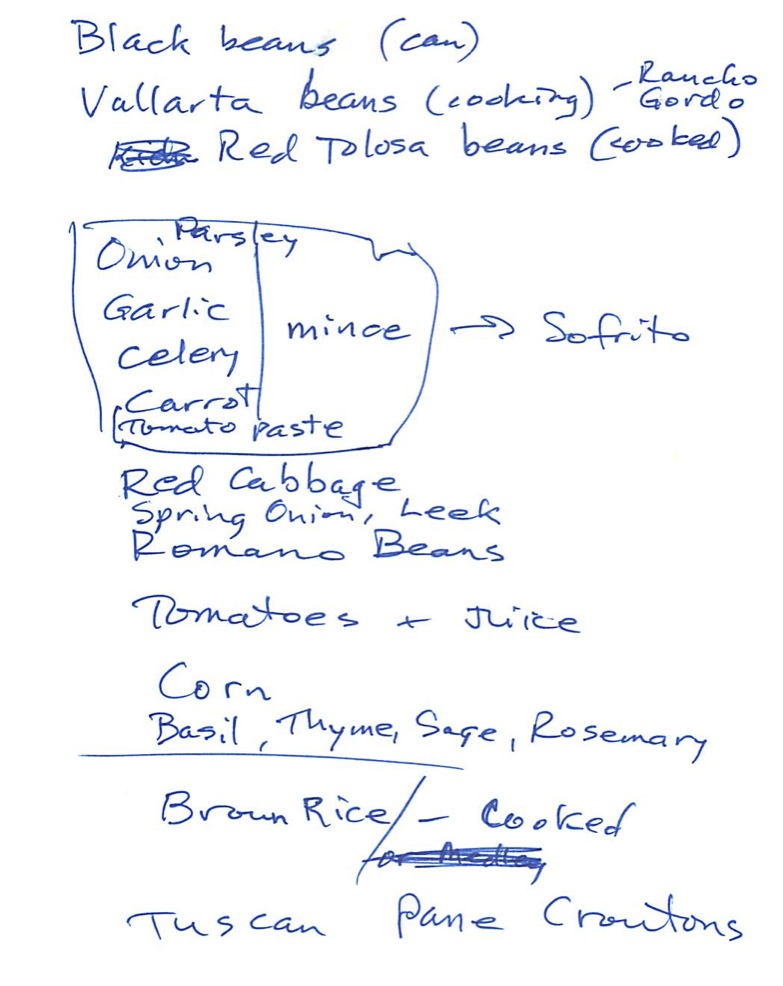 Black beans (can)
Vallarta beans (cooking) - Rancho Gordo
Red Tolosa beans (cooked)
Parsley
Onion
Garlic
Celery
Carrot
Tomato paste
mince → Sofrito
Red Cabbage
Spring Onion, Leek
Romano Beans
Tomatoes + Juice
Corn
Basil, Thyme, Sage, Rosemary
Brown Rice / - Cooked
or Medley
Tuscan Pane Croutons